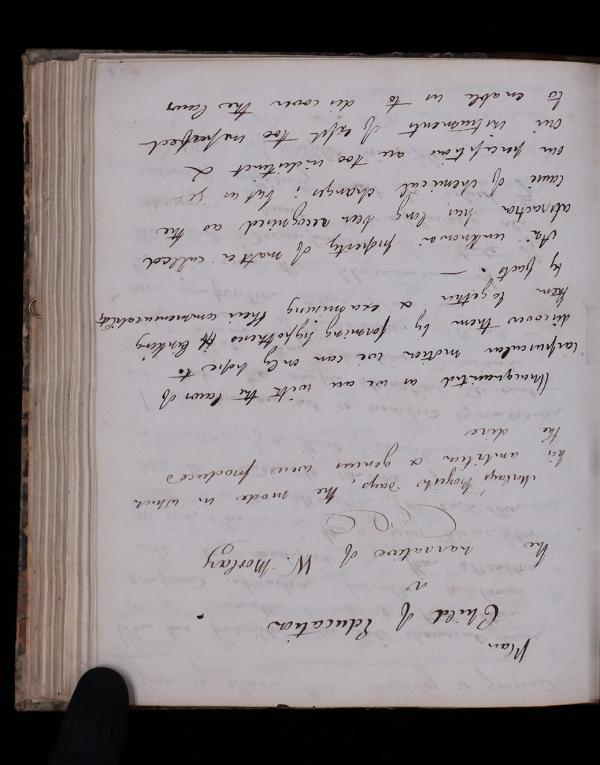 Plan
Child of Education
or
the narrative of W. Morlay
Morlays Projects Days, the mode in which
his ambition & genius were produced
the dire
Unacquainted as we are with the laws of
corpuscular motion we can only hope to
discover them by forming hypotheses & linking
them together & examining their commensurability
by facts. —
An unknown property of matter called
attraction has long been recognised as the
cause of chemical changes; but as yet
our perceptions are too indistinct &
our instruments of expt too imperfect
to enable us to discover the laws